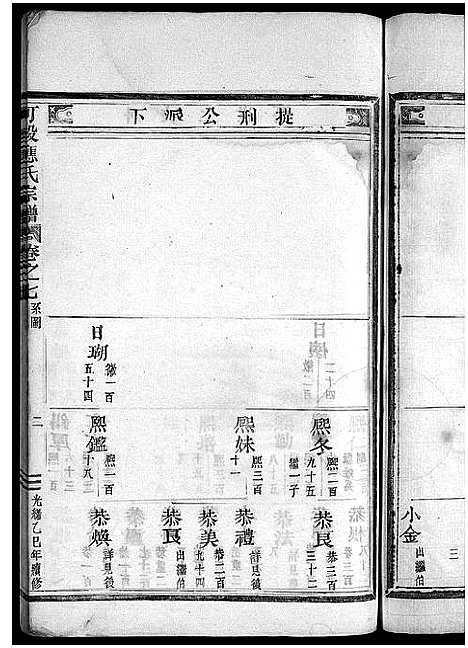 提刑公派下
小金
出繼伯
三
熙冬
熙一百
九十五
繼一子
恭艮
恭二百
三十二
熙妹
熙三百
十一
恭禮
詳見後
恭美
恭二百
九十四
恭艮
出繼伯
日瑚
徽一百
五十四
熙鑑
熙一百
十八
恭煥
詳見後
應氏宗譜
卷之七
系圖
二
光緒乙巳年續修